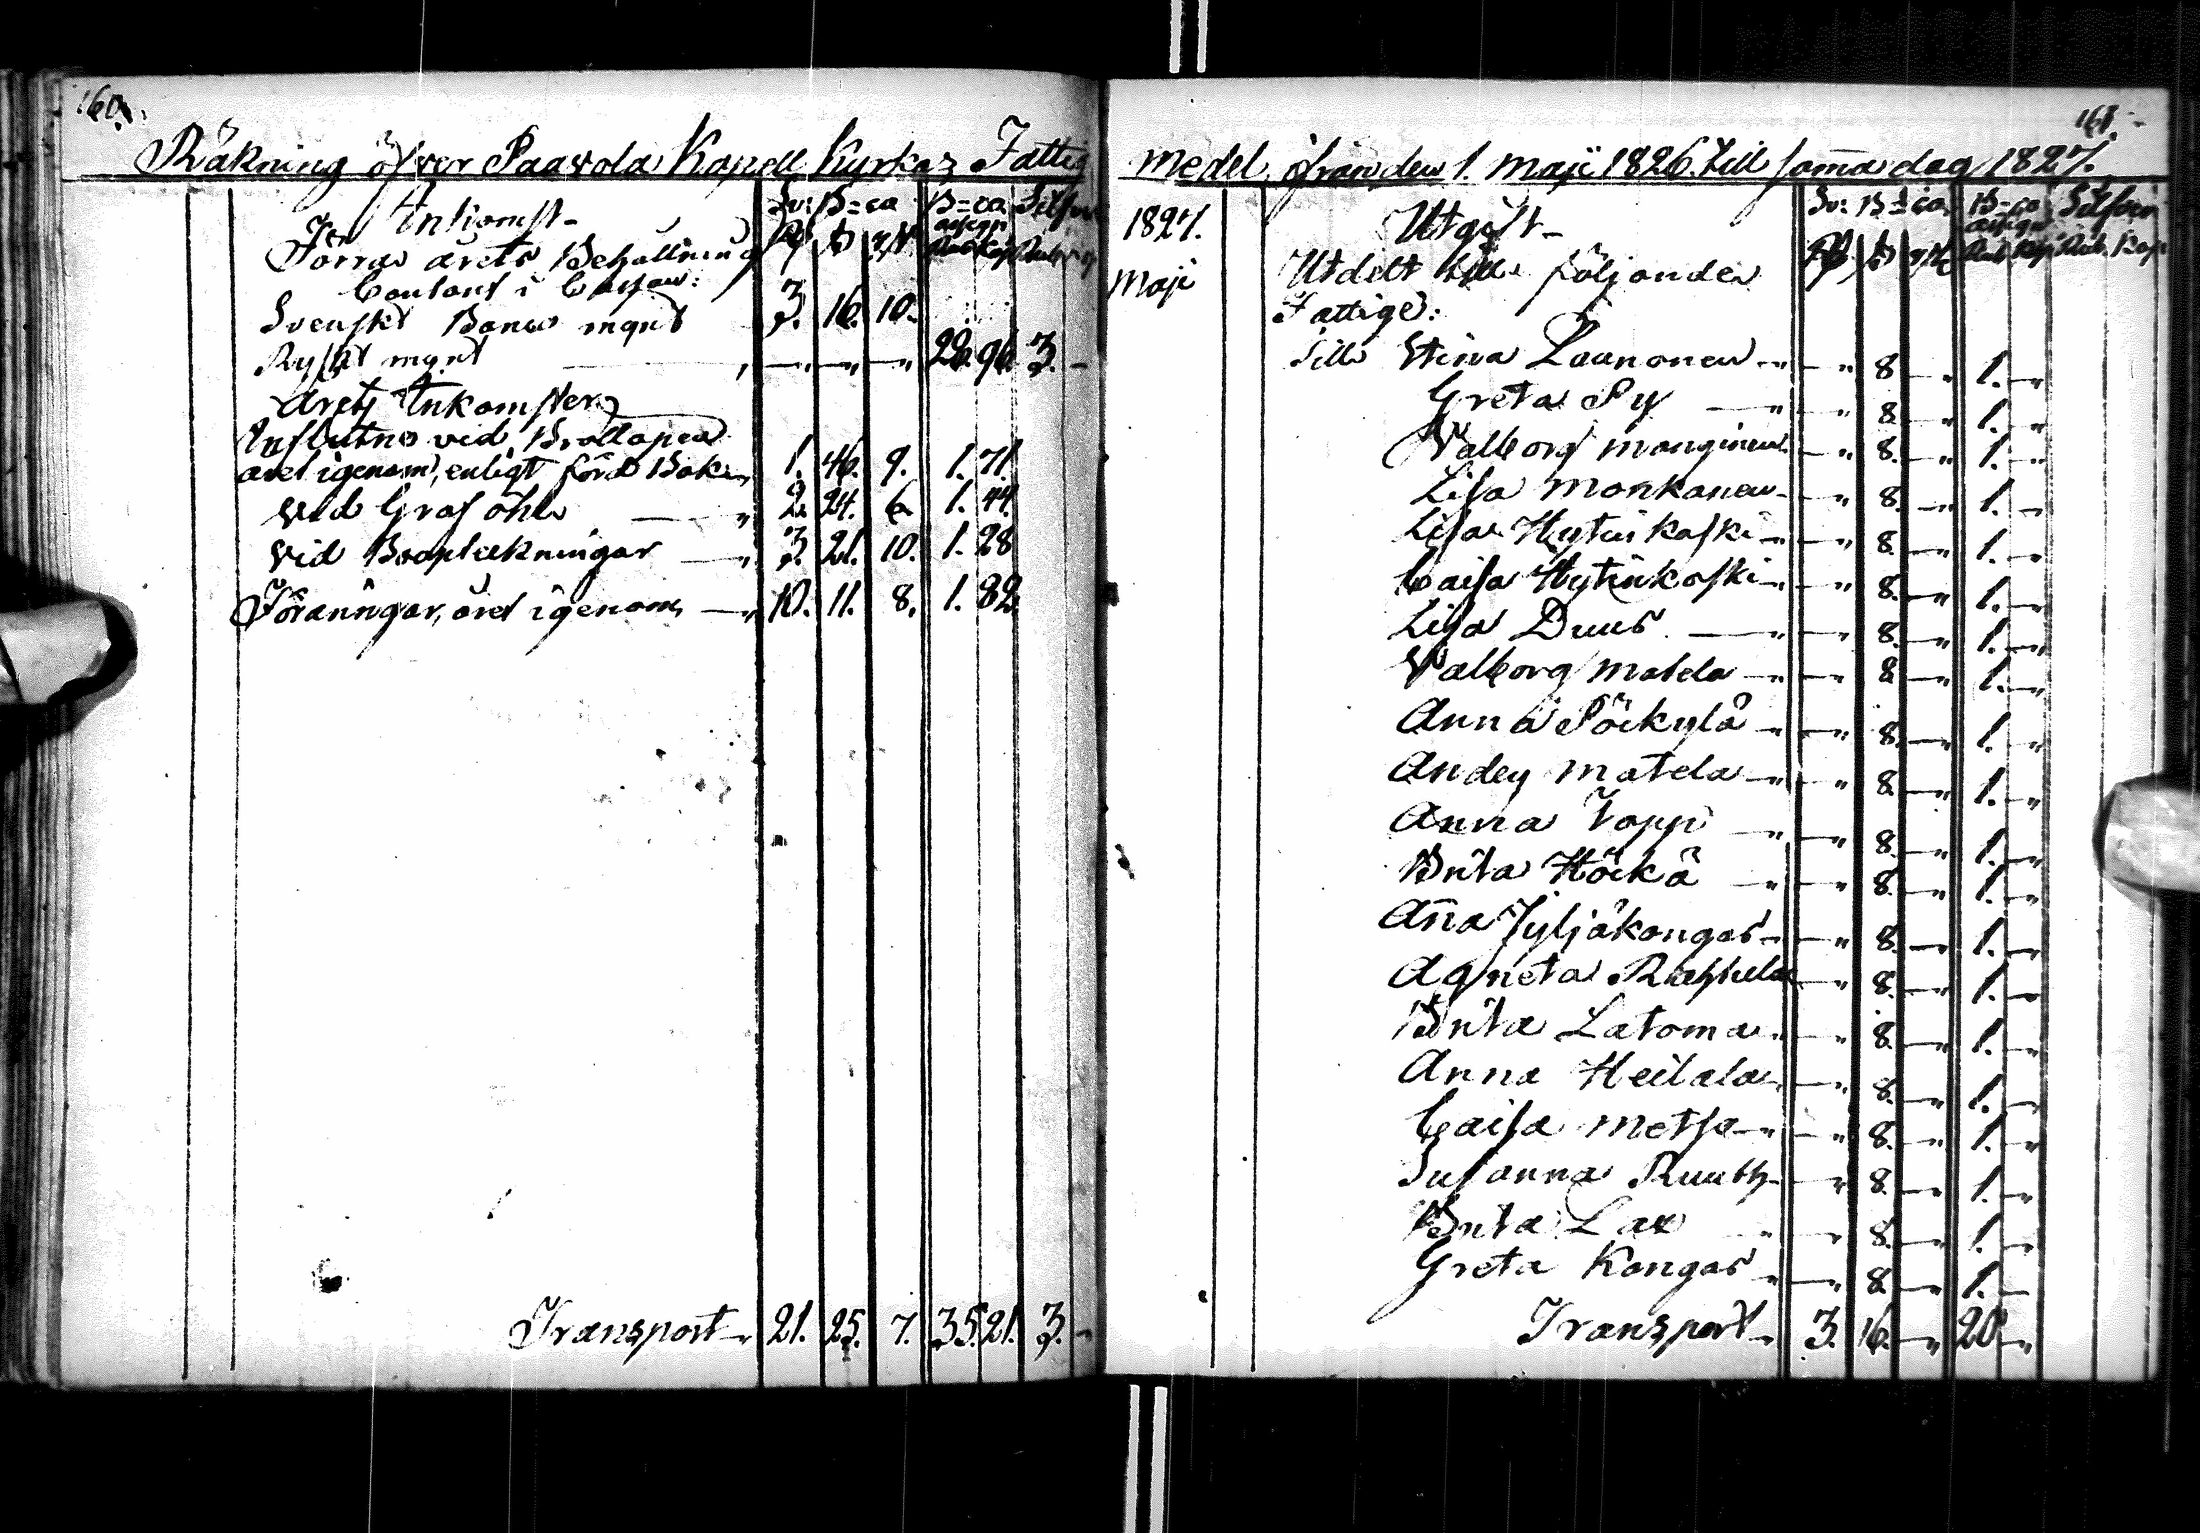 160.
Räkning öfver Paavola Kapell Kyrkas Fattig
Inkomst
Sv: B=co B=co Silfver
Förra årets Behållning
Contant i Cassan:
Svenskt Banco mynt 3. 16. 10.
Ryskt mynt — „ — „ — „ 28. 96. 3. —
Årets Inkomster
Influtne vid Bröllopen
året igenom, enligt förd Bok — „ 1. 46. 9. 1. 71.
vid Graföhl — „ 2. 24. 6. 1. 44.
vid Barntäkningar — „ 3. 21. 10. 1. 28
Föräningar, året igenom — „ 10. 11. 8. 1. 82.
Transport — „ 21. 25. 7. 35. 21. 3. —
161.
medel ifrån den 1. Maji 1826. till samma dag 1827.
1827. Utgift —
Sv: B=co B=co Silfver
Maji Utdelt till följande
Fattige:
Till Stina Launonen — „ — „ 8 — „ 1. — „
Greta Py — „ — „ 8 — „ 1. — „
Valborg Manginen — „ 8. — „ 1. — „
Lisa Monkanen — „ 8. — „ 1. — „
Lisa Hytinkoski — „ — „ 8. — „ 1. — „
Caisa Hytinkoski — „ — „ 8. — „ 1. — „
Lisa Duus — „ — „ 8. — „ 1. — „
Valborg Matela — „ — „ 8 — „ 1. — „
Anna Pöikylä — „ — „ 8. — „ 1. — „
Anders Matela — „ — „ 8. — „ 1. — „
Anna Topp — „ — „ 8. — „ 1. — „
Brita Höikä — „ — „ 8. — „ 1. — „
Aña Jyljäkangas — „ — „ 8. — „ 1. — „
Agneta — „ 8. — „ 1. — „
Brita Latoma — „ — „ 8. — „ 1. — „
Anna Heilala — „ — „ 8. — „ 1. — „
Caisa Metsa — „ — „ 8. — „ 1. — „
Susanna Ruuth — „ 8. — „ 1. — „
Brita Lax — „ — „ 8. — „ 1. — „
Greta Kangas — „ — „ 8 — „ 1. —
Transport — „ 3. 16. — „ 20 — „